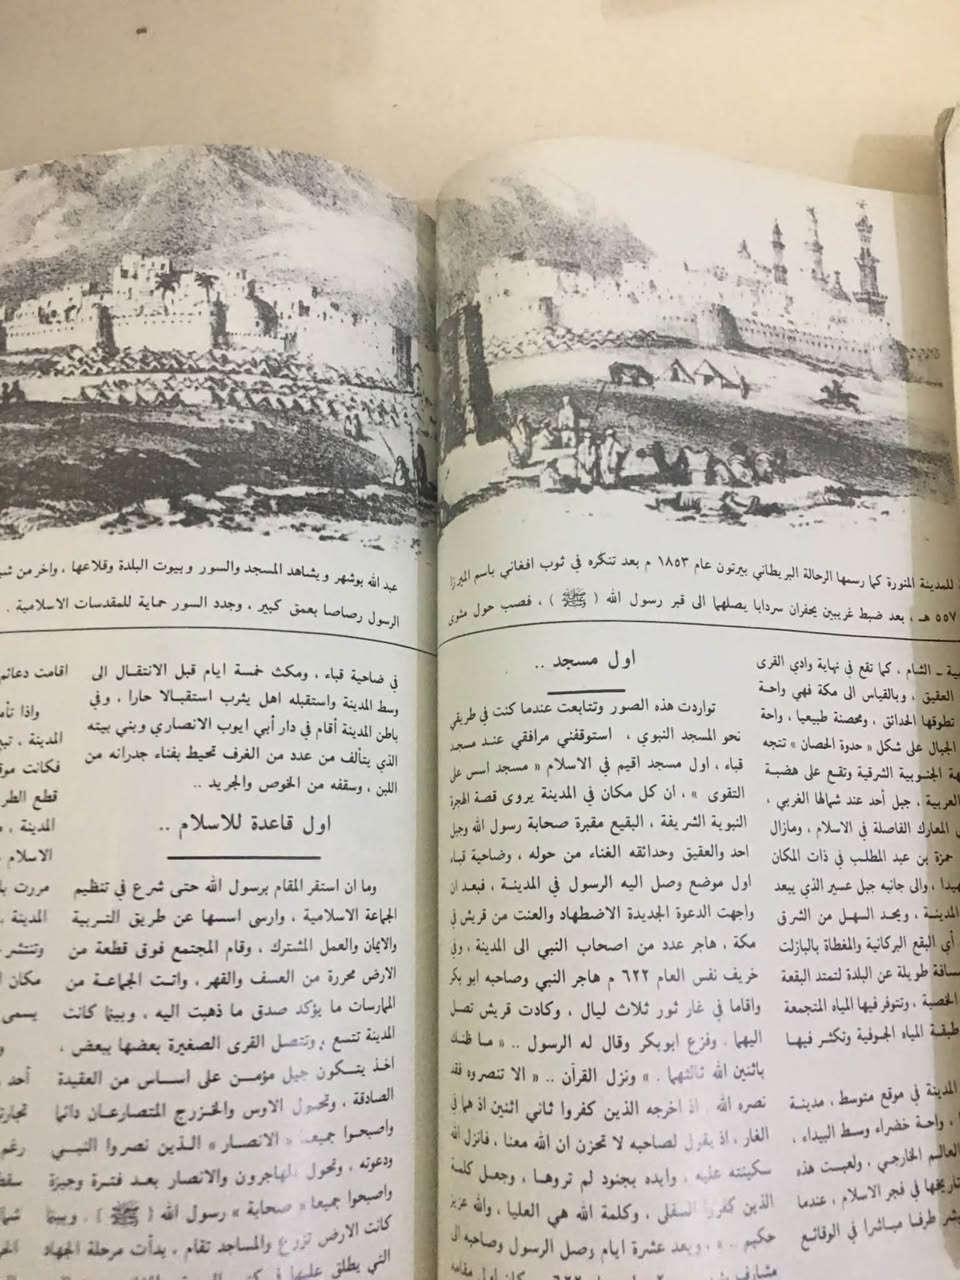 للمدينة المنورة كما رسمها الرحالة البريطاني بيرتون عام ١٨٥٣ م بعد تنكره في ثوب افغاني باسم الميرزا
٥٥٧ هـ ، بعد ضبط غريبين يحفران سردابا يصلهما الى قبر رسول الله ( ﷺ ) ، فصب حول مثوى
عبد الله بوشهر ويشاهد المسجد والسور وبيوت البلدة وقلاعها ، واخر من
الرسول رصاصا بعمق كبير ، وجدد السور حماية للمقدسات الاسلامية .
ـ الشام ، كما تقع في نهاية وادي القرى
العقيق ، وبالقياس الى مكة فهي واحة
تطوقها الحدائق ، ومحصنة طبيعيا ، واحة
الجبال على شكل « حدوة الحصان » تتجه
الجنوبية الشرقية وتقع على هضبة
العربية ، جبل أحد عند شمالها الغربي ،
المعارك الفاصلة في الاسلام ، ومازال
حمزة بن عبد المطلب في ذات المكان
، والى جانبه جبل عسير الذي يبعد
المدينة ، ويحد السهل من الشرق
أي البقع البركانية والمغطاة بالبازلت
مسافة طويلة عن البلدة لتمتد البقعة
الخصبة ، وتتوفر فيها المياه المتجمعة
طبقة المياه الجوفية وتكثر فيها
المدينة في موقع متوسط ، مدينة
، واحة خضراء وسط البيداء ،
العالم الخارجي ، ولعبت هذه
تاريخها في فجر الاسلام ، عندما
طرفا مباشرا في الوقائع
اول مسجد ..
تواردت هذه الصور وتتابعت عندما كنت في طريقي
نحو المسجد النبوي ، استوقفني مرافقي عند مسجد
قباء ، اول مسجد اقيم في الاسلام « مسجد اسس على
التقوى » ، ان كل مكان في المدينة يروى قصة الهجرة
النبوية الشريفة ، البقيع مقبرة صحابة رسول الله وجبل
احد والعقيق وحدائقه الغناء من حوله ، وضاحية قباء
اول موضع وصل اليه الرسول في المدينة ، فبعد ان
واجهت الدعوة الجديدة الاضطهاد والعنت من قريش في
مكة ، هاجر عدد من اصحاب النبي الى المدينة ، وفي
خريف نفس العام ٦٢٢ م هاجر النبي وصاحبه ابو بكر
واقاما في غار ثور ثلاث ليال ، وكادت قريش تصل
اليهما . وفزع ابوبكر وقال له الرسول .. « ما ظنك
باثنين الله ثالثهما . » ونزل القرآن .. « الا تنصروه فقد
نصره الله اذ اخرجه الذين كفروا ثاني اثنين اذ هما في
الغار ، اذ يقول لصاحبه لا تحزن ان الله معنا ، فانزل الله
سكينته عليه ، وايده بجنود لم تروها ، وجعل كلمة
الذين كفروا السفلى ، وكلمة الله هي العليا ، والله عزيز
حكيم .. » ، وبعد عشرة ايام وصل الرسول وصاحبه الى
في ضاحية قباء ، ومكث خمسة ايام قبل الانتقال الى
وسط المدينة واستقبله اهل يثرب استقبالا حارا ، وفي
باطن المدينة أقام في دار أبي ايوب الانصاري وبني بيته
الذي يتألف من عدد من الغرف تحيط بفناء جدرانه من
اللبن ، وسقفه من الخوص والجريد ..
اول قاعدة للاسلام ..
وما ان استقر المقام برسول الله حتى شرع في تنظيم
الجماعة الاسلامية ، وارسى اسسها عن طريق التربية
والايمان والعمل المشترك ، وقام المجتمع فوق قطعة من
الارض محررة من العسف والقهر ، واتت الجماعة من
الممارسات ما يؤكد صدق ما ذهبت اليه ، وبينما كانت
المدينة تتسع ، وتتصل القرى الصغيرة بعضها ببعض ،
اخذ يتكون جيل مؤمن على اساس من العقيدة
الصادقة ، وتحول الاوس والخزرج المتصارعان دائما
واصبحوا جميعا « الانصار » الذين نصروا النبي
ودعوته ، وتحول المهاجرون والانصار بعد فترة وجيزة
واصبحوا جميعا « صحابة » رسول الله ( ﷺ ) ، وبينما
كانت الارض تزرع والمساجد تقام ، بدأت مرحلة الجهاد
اقامت دعائم
واذا
المدينة ،
فكانت
قطع
المدينة ،
الاسلام
مررت
المدينة ،
وتنتشر
مكان
يسمى
أحد
رغم